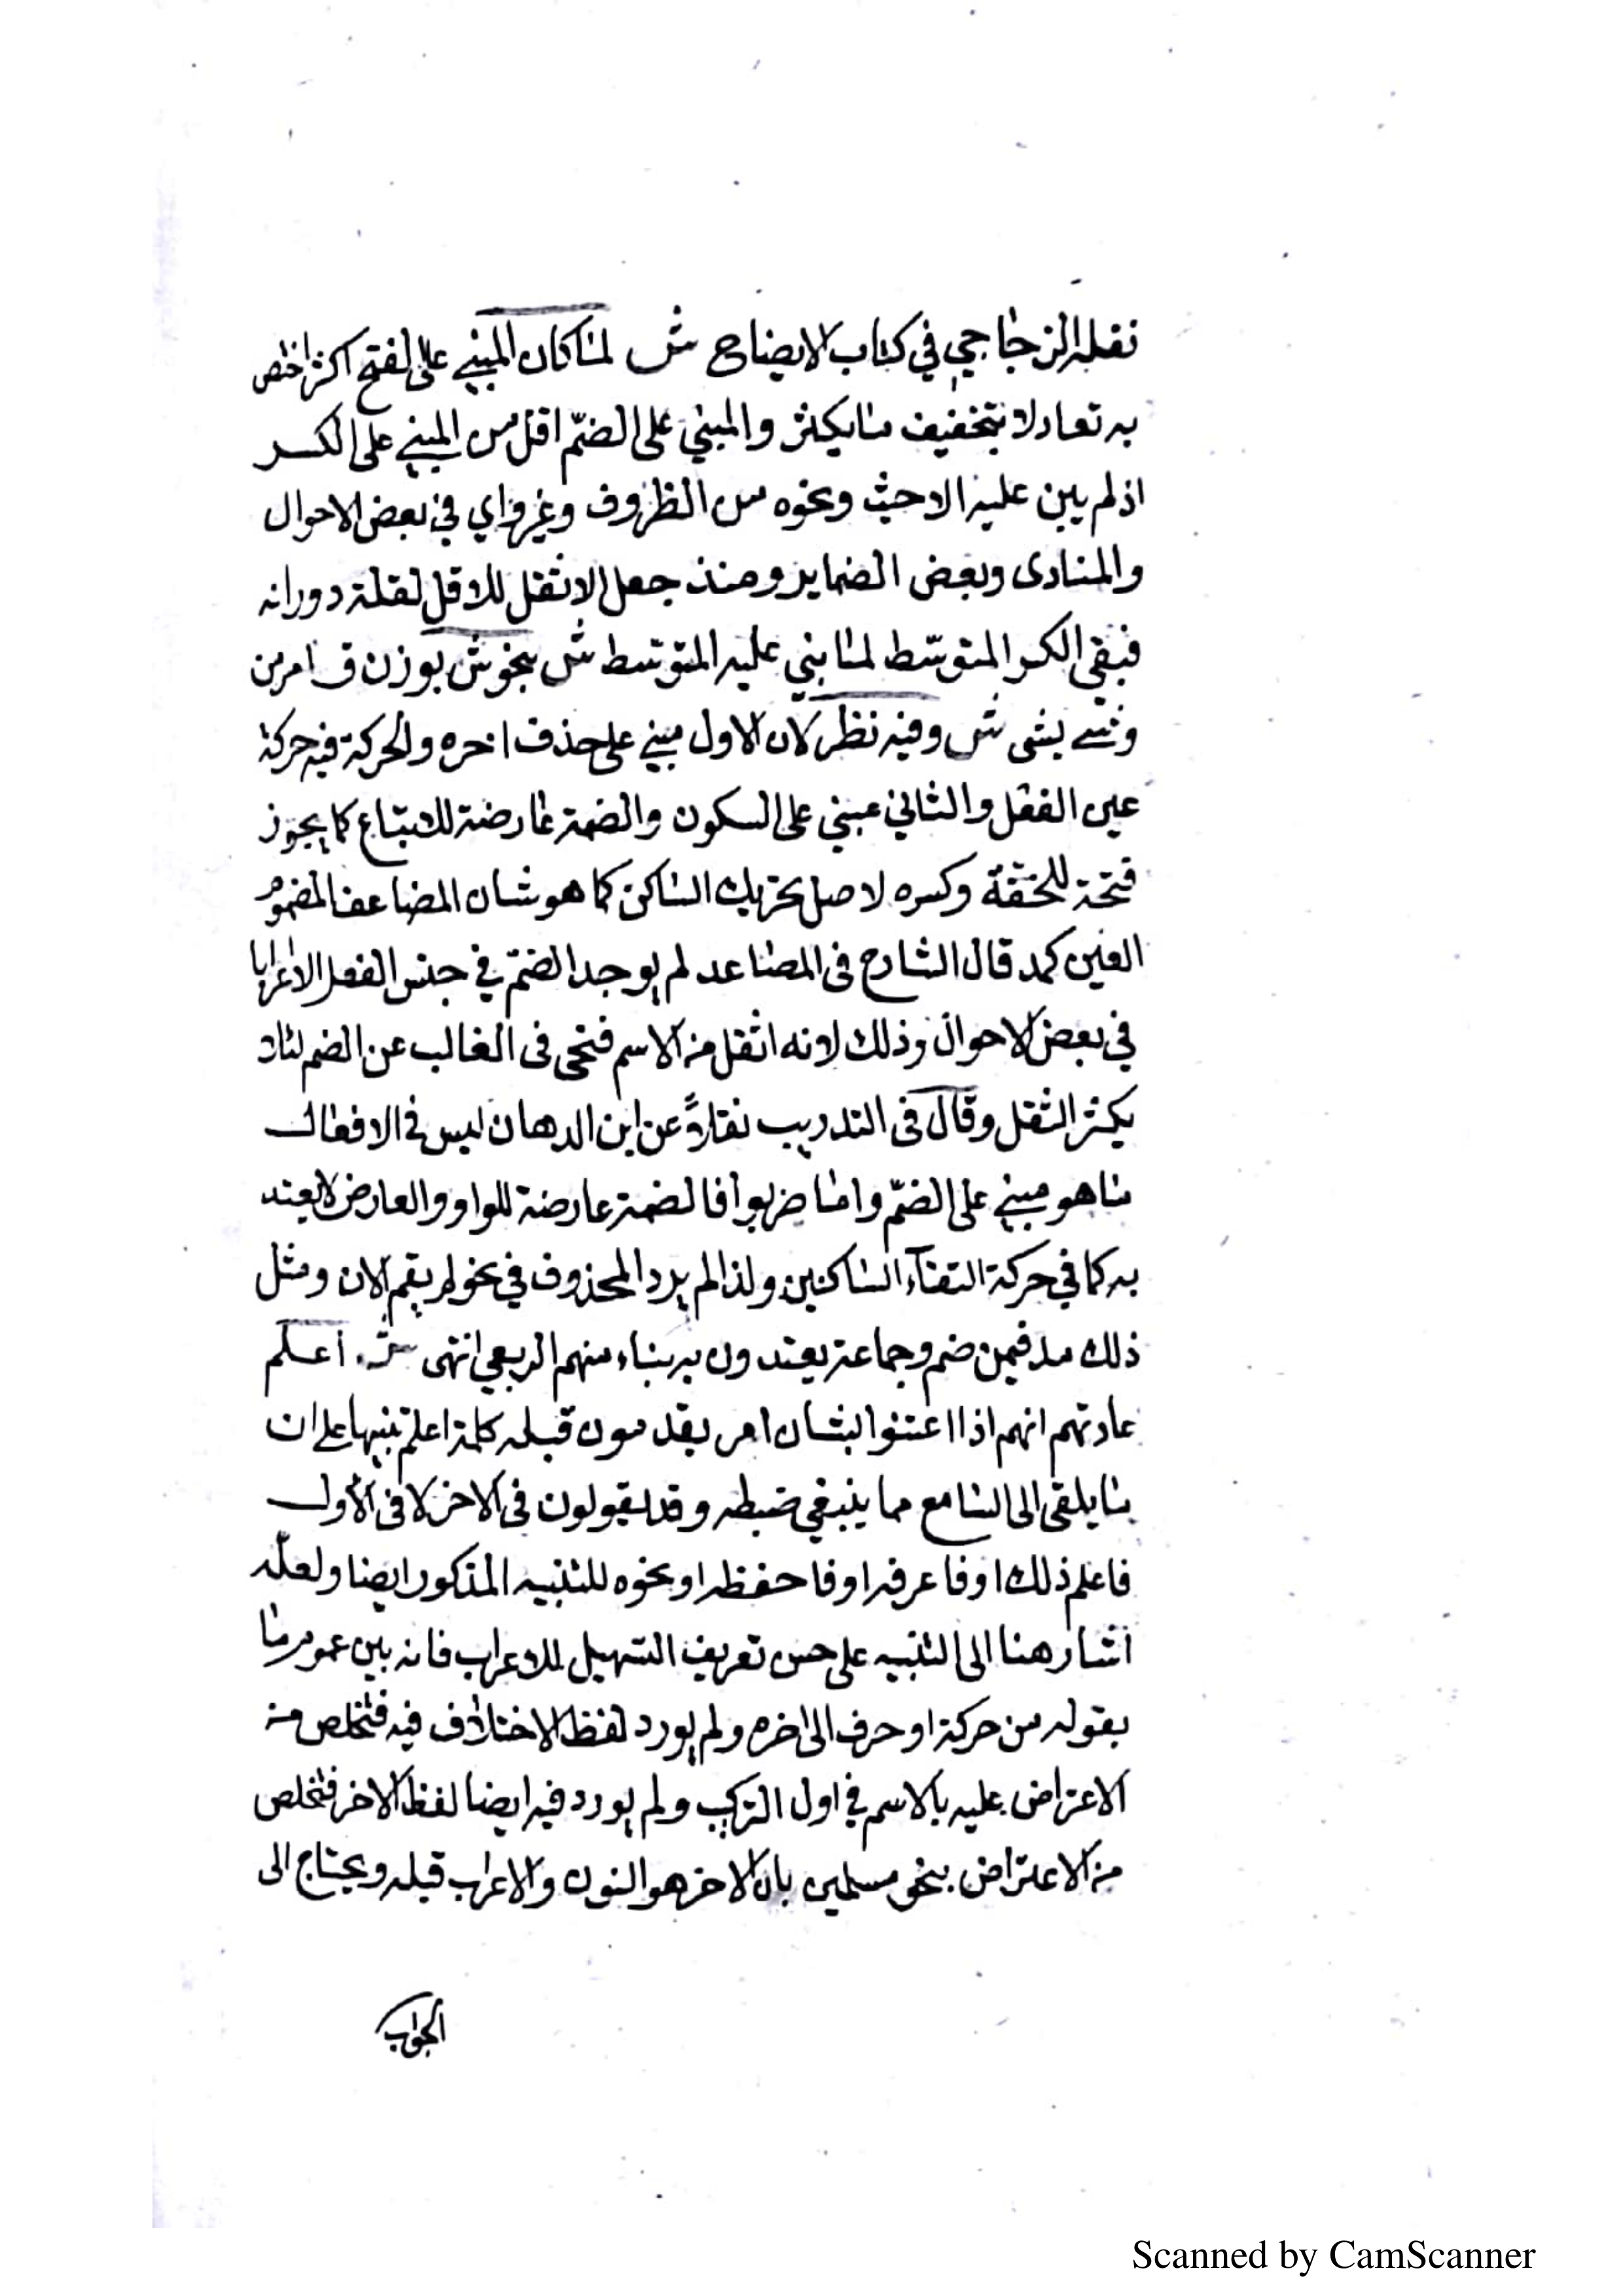 نقله الزجاجي في كتاب الايضاح ش لما كان المبني على الفتح اكثر اختص
به تعادلا بتخفيف ما يكثر والمبني على الضمّ اقل من المبني على الكسر
اذ لم يبن عليه الا حيث ونحوه من الظروف وغير واي في بعض الاحوال
والمنادى وبعض الضماير ومنذ جعل الاثقل للاقل لقلة دورانه
فبقي الكسر المتوسّط لما بني عليه المتوسط ش بنحو ش بوزن ق امر من
وشى يشى ش وفيه نظر لان الاول مبني على حذف اخره والحركة فيه حركة
عين الفعل والثاني مبني على السكون والضمة عارضة للاتباع كما يجوز
فتحة للخفّة وكسره لاصل تحريك الساكن كما هو شان المضاعف المضموم
العين كمد قال الشارح فى المصاعد لم يوجد الضمّ في جنس الفعل الا اعرابا
في بعض الاحوال وذلك لانه اثقل من الاسم فنحى فى الغالب عن الضم لئلا
يكثر الثقل وقال فى التدريب نقلاً عن ابن الدهان ليس في الافعال
ما هو مبني على الضمّ واما ضربوا فالضمة عارضة للواو والعارض لا يعتد
به كما في حركة التقآء الساكنين ولذا لم يرد المحذوف في نحو لم يقم الان ومثل
ذلك مد فيمن ضم وجماعة يعتدون به بناء منهم الربعي انتهى ش. اعلم
عادتهم انهم اذا اعتنوا بشان امر يقدمون قبله كلمة اعلم تنبيها على ان
ما يلقى الى السامع مما ينبغي ضبطه وقد يقولون فى الاخر لا فى الأول
فاعلم ذلك او فاعرفه او فاحفظه او نحوه للتنبيه المذكور ايضا ولعلّه
اشار هنا الى التنبيه على حسن تعريف التسهيل للاعراب فانه بين عموم ما
بقوله من حركة او حرف الى اخره ولم يورد لفظ الاختلاف فيه فتخلص من
الاعتراض عليه بالاسم في اول التركيب ولم يورد فيه ايضا لفظ الاخر فتخلص
من الاعتراض بنحو مسلمين بان الاخر هو النون والاعراب قبله ويحتاج الى
الجواب
Scanned by CamScanner